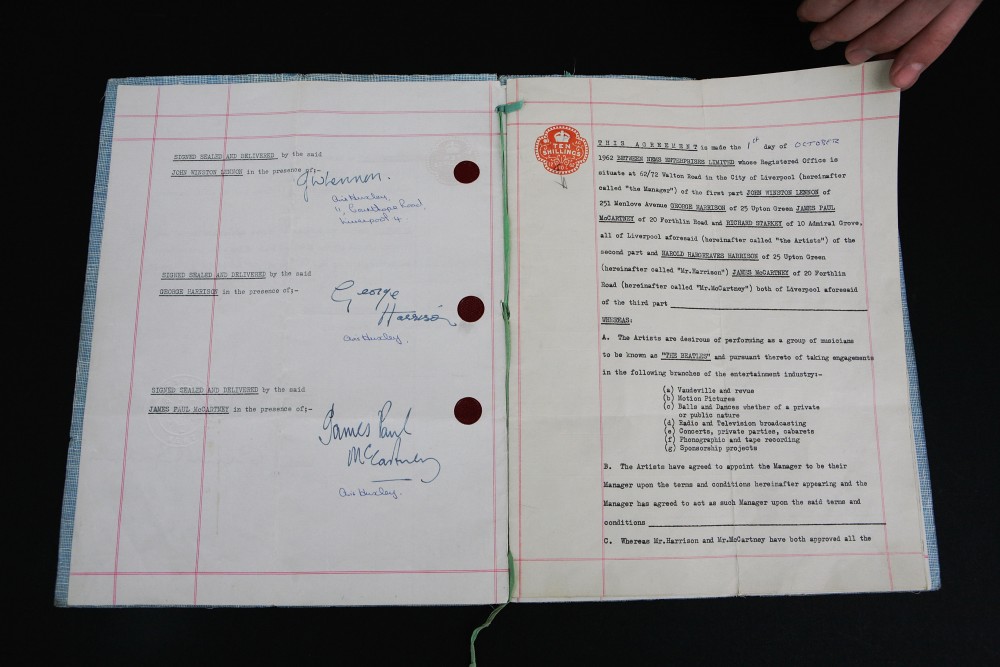 SIGNED SEALED AND DELIVERED by the said
JOHN WINSTON LENNON in the presence of;-
JWLennon.
Liverpool 4
SIGNED SEALED AND DELIVERED by the said
GEORGE HARRISON in the presence of;-
George
Harrison
SIGNED SEALED AND DELIVERED by the said
JAMES PAUL McCARTNEY in the presence of;-
James Paul
McCartney
TEN
SHILLINGS
THIS AGREEMENT is made the 1st day of OCTOBER
1962 BETWEEN NEMS ENTERPRISES LIMITED whose Registered Office is
situate at 62/72 Walton Road in the City of Liverpool (hereinafter
called "the Manager") of the first part JOHN WINSTON LENNON of
251 Menlove Avenue GEORGE HARRISON of 25 Upton Green JAMES PAUL
McCARTNEY of 20 Forthlin Road and RICHARD STARKEY of 10 Admiral Grove,
all of Liverpool aforesaid (hereinafter called "the Artists") of the
second part and HAROLD HARGREAVES HARRISON of 25 Upton Green
(hereinafter called "Mr.Harrison") JAMES McCARTNEY of 20 Forthlin
Road (hereinafter called "Mr.McCartney") both of Liverpool aforesaid
of the third part
WHEREAS:
A. The Artists are desirous of performing as a group of musicians
to be known as "THE BEATLES" and pursuant thereto of taking engagements
in the following branches of the entertainment industry:-
(a) Vaudeville and revue
(b) Motion Pictures
(c) Balls and Dances whether of a private
or public nature
(d) Radio and Television broadcasting
(e) Concerts, private parties, cabarets
(f) Phonographic and tape recording
(g) Sponsorship projects
B. The Artists have agreed to appoint the Manager to be their
Manager upon the terms and conditions hereinafter appearing and the
Manager has agreed to act as such Manager upon the said terms and
conditions
C. Whereas Mr.Harrison and Mr.McCartney have both approved all the